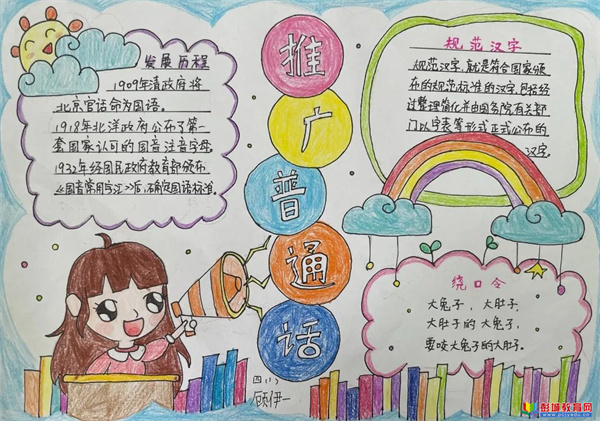 推
广
普
通
话
发展历程
1909年清政府将
北京官话命为国语。
1918年北洋政府公布了第一
套国家认可的国音注音字母,
1932年经国民政府教育部颁布
《国音常用字汇》后,确定国语标准。
规范汉字
规范汉字,就是符合国家颁
布的规范标准的汉字,包括经
过整理简化并由国务院有关部
门以字表等形式正式公布的
汉字。
绕口令
大兔子,大肚子,
大肚子的大兔子,
要咬大兔子的大肚子。
四(1)
顾伊一
彭城教育网
www.pcjyedu.cn